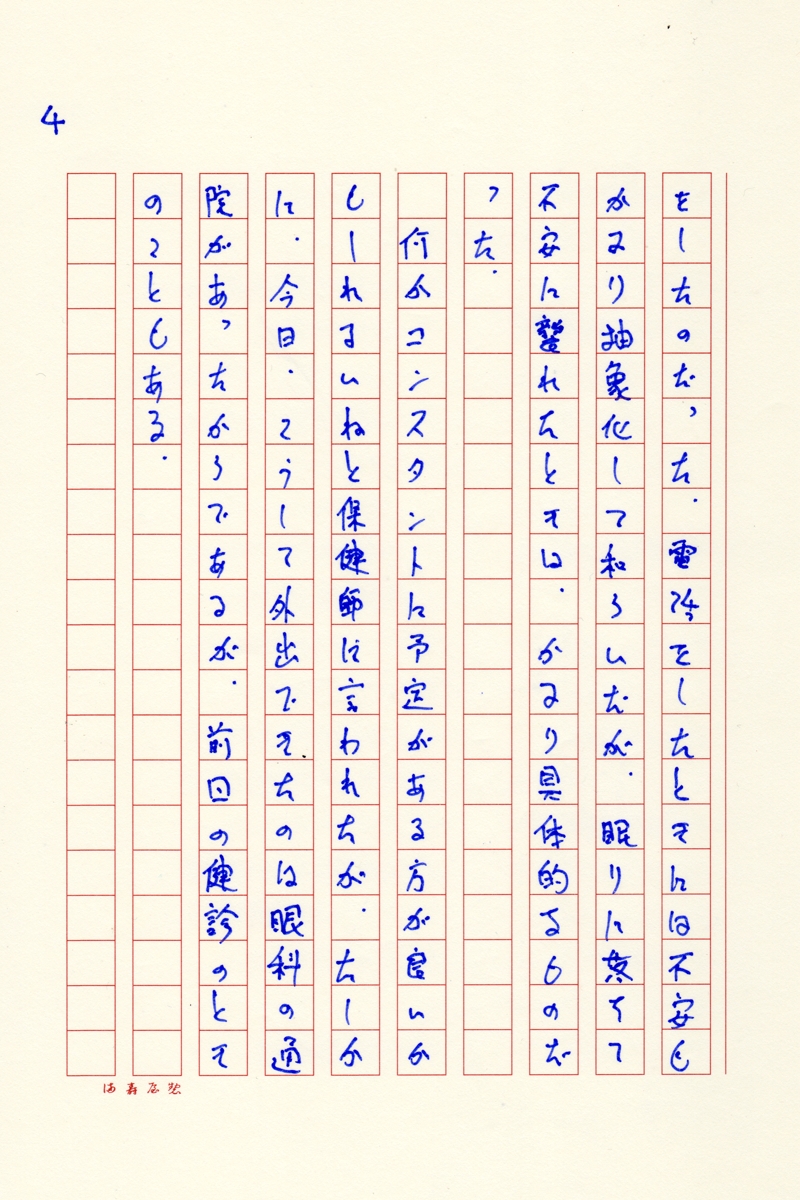 4
をしたのだった。電話をしたときには不安も
かなり抽象化して和らいだが、眠りに落ちて
不安に襲われたときは、かなり具体的なものだ
った。
何かコンスタントに予定がある方が良いか
もしれないねと保健師に言われたが、たしか
に、今日、こうして外出できたのは眼科の通
院があったからであるが、前回の健診のとき
のこともある。